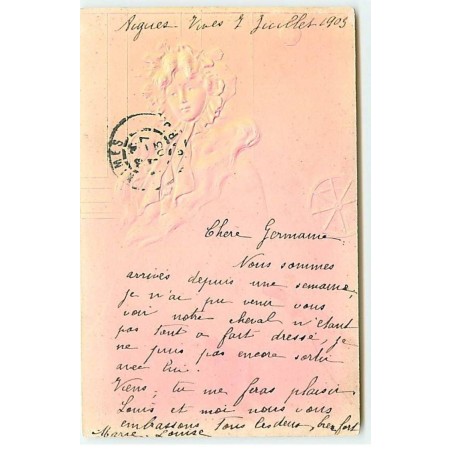 Aigues Vives 7 Juillet 1903
NIMES
Chère Germaine
Nous sommes
arrivés depuis une semaine,
je n'ai pu venir vous
voir notre cheval n'étant
pas tout a fait dressé, je
ne puis pas encore sortir
avec lui.
Viens, tu me feras plaisir
Louis et moi nous vous
embrassons tous les deux, bien fort
Marie-Louise